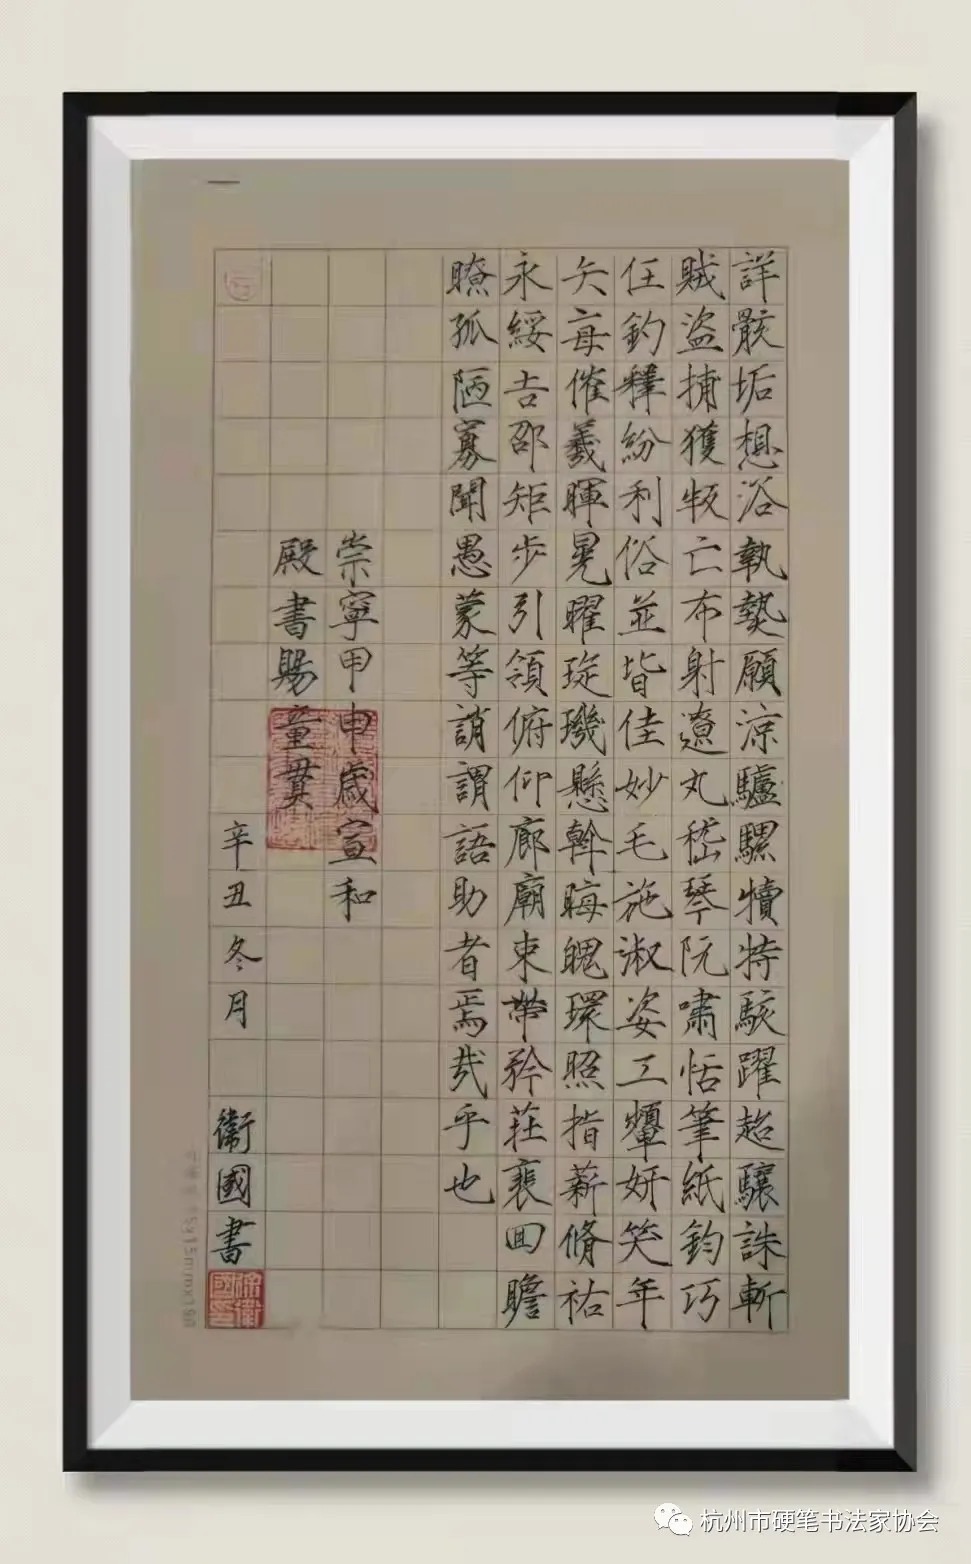 詳骸垢想浴執熱願涼驢騾犢特駭躍超驤誅斬
賊盜捕獲叛亡布射遼丸嵇琴阮嘯恬筆紙鈞巧
任釣釋紛利俗並皆佳妙毛施淑姿工顰妍笑年
矢每催羲暉晃曜琁璣懸斡晦魄環照指薪脩祜
永綏吉邵矩步引領俯仰廊廟束帶矜莊裵回瞻
瞭孤陋寡聞愚蒙等誚謂語助者焉哉乎也
崇寧甲申歲宣和
殿書賜童貫
辛丑冬月 衛國書
杭州市硬笔书法家协会